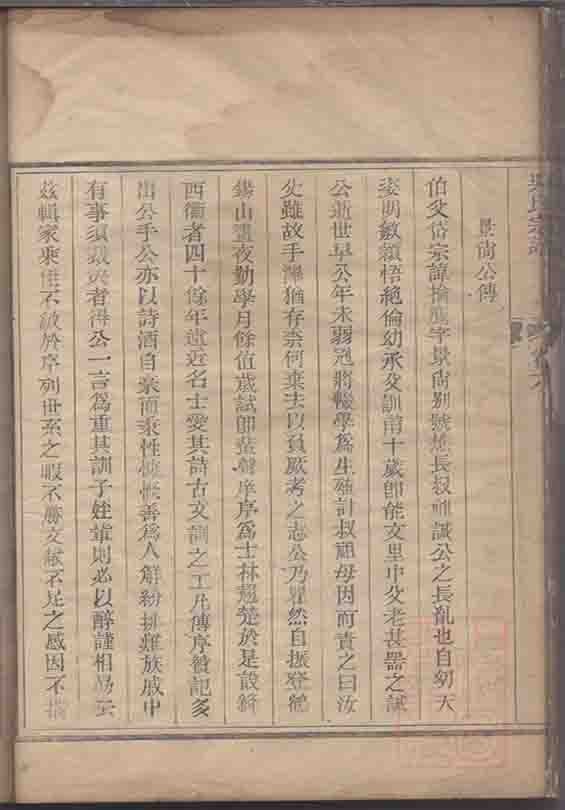 吳氏宗譜
卷六
景尙公傳
伯父岱宗諱掄選字景尙別號蕉長叔祖誠公之長亂也自幼天
姿明敏穎悟絕倫幼承父訓甫十歲卽能文里中父老甚器之誠
公逝世早公年未弱冠將輟學爲生殖計叔祖母因而責之曰汝
父雖故手澤猶存奈何棄去以負厥考之志公乃瞿然自振登鶴
錫山晝夜勤學月餘值歲試卽蜚聲庠序爲士林翹楚於是設
西衛者四十餘年遠近名士愛其詩古文訓之工凡傳序贊記多
出公手公亦以詩酒自豪而秉性慷慨善爲人解紛排難族戚中
有事須裁決者得公一言爲重其訓子姪輩則必以醇謹相勗云
茲輯家乘僅不敏於序列世系之暇不勝文獻不足之感因不揣